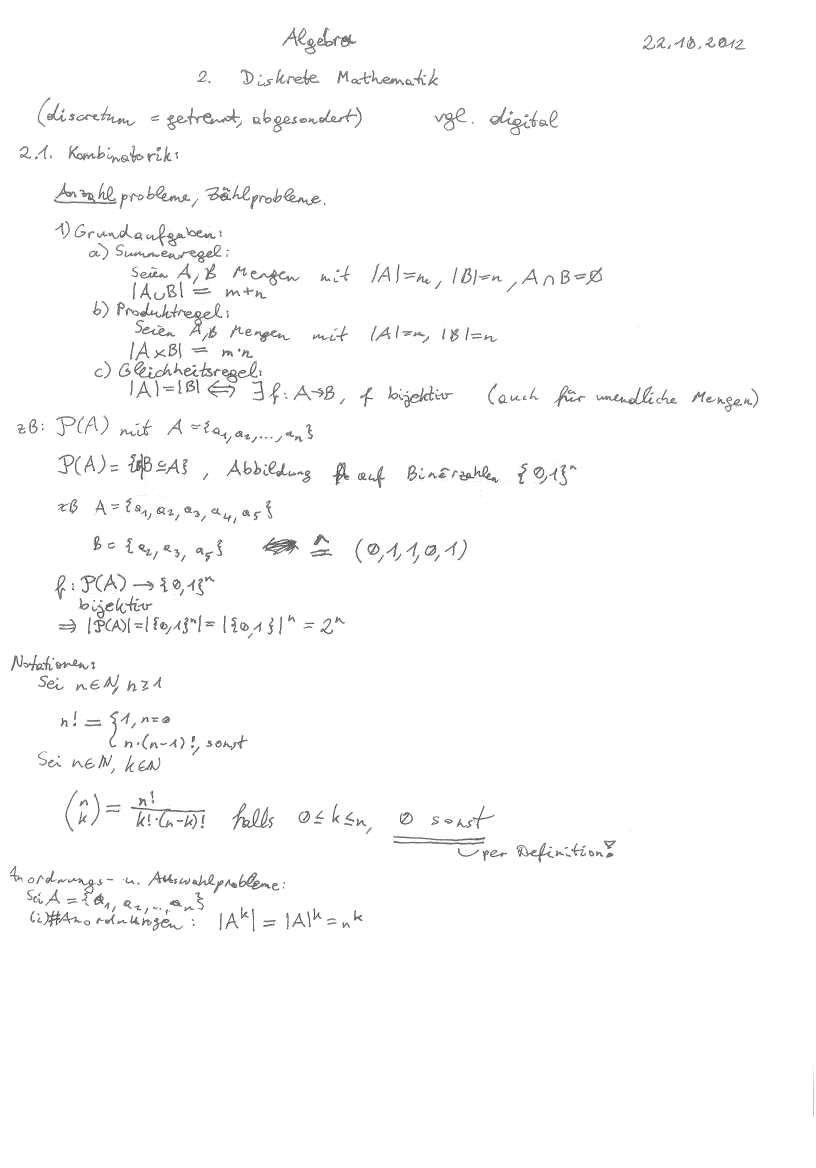 Algebra 22.10.2012
2. Diskrete Mathematik
(discretum = getrennt, abgesondert) vgl. digital
2.1. Kombinatorik:
Anzahlprobleme, Zählprobleme.
1) Grundaufgaben:
a) Summenregel:
Seien A, B Mengen mit |A|=m, |B|=n, A∩B=∅
|A∪B| = m+n
b) Produktregel:
Seien A,B Mengen mit |A|=m, |B|=n
|A×B| = m·n
c) Gleichheitsregel:
|A|=|B| ⟺ ∃ f: A→B, f bijektiv (auch für unendliche Mengen)
zB: P(A) mit A={a₁,a₂,...,aₙ}
P(A) = {B⊆A}, Abbildung auf Binärzahlen {0,1}ⁿ
zB A={a₁,a₂,a₃,a₄,a₅}
B = {a₂,a₃,a₅} ≙ (0,1,1,0,1)
f: P(A) → {0,1}ⁿ
bijektiv
⇒ |P(A)|=|{0,1}ⁿ|=|{0,1}|ⁿ = 2ⁿ
Notationen:
Sei n∈ℕ, n≥1
n! = { 1, n=0
n·(n-1)!, sonst
Sei n∈ℕ, k∈ℕ
(n k) = n! / k!·(n-k)! falls 0≤k≤n, 0 sonst
per Definition!
Anordnungs- u. Auswahlprobleme:
Sei A = {a₁, a₂, ..., aₙ}
(i) #Anordnungen: |Aᵏ| = |A|ᵏ = nᵏ